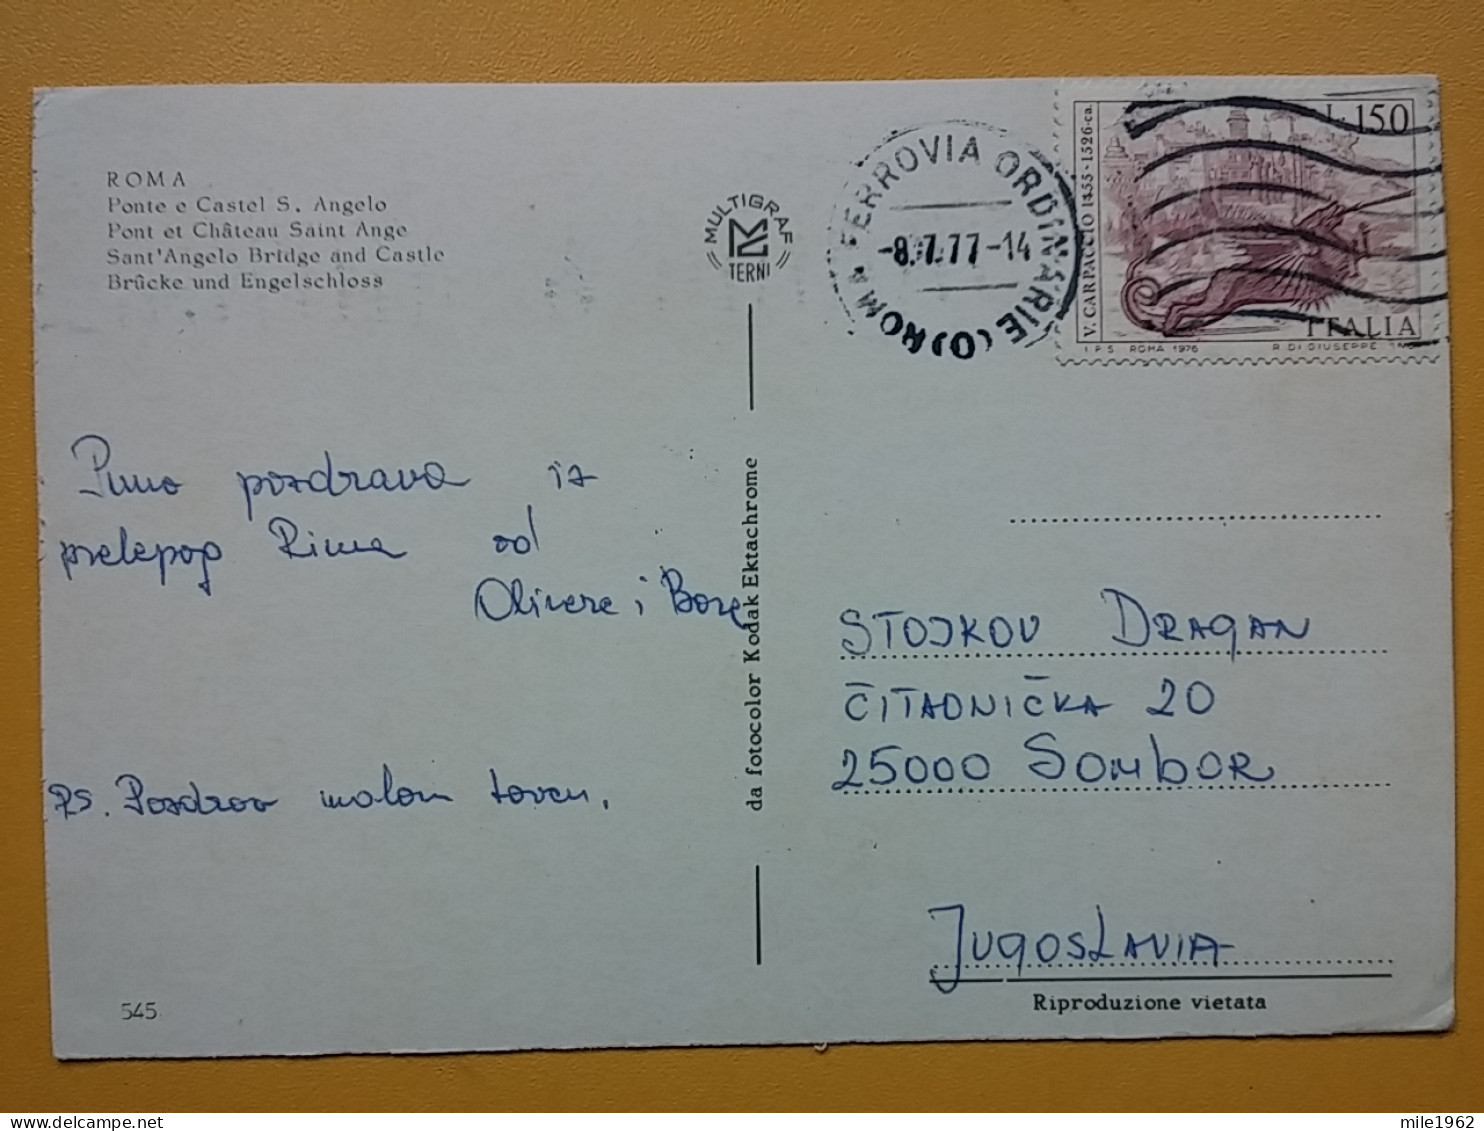 ROMA
Ponte e Castel S. Angelo
Pont et Château Saint Ange
Sant'Angelo Bridge and Castle
Brücke und Engelschloss
MULTIGRAF
TERNI
ROMA FERROVIA ORDINARIE (O)
-8.7.77-14
L.150
V. CARPACCIO 1455-1526 ca.
ITALIA
I.P.S. ROMA 1976 R. DI GIUSEPPE INC.
Puno pozdrava iz
prelepog Rima od
Olivere i Bore
PS. Pozdrav malom
da fotocolor Kodak Ektachrome
STOJKOV DRAGAN
ČITAONIČKA 20
25000 SOMBOR
JUGOSLAVIA
Riproduzione vietata
545
mile1962